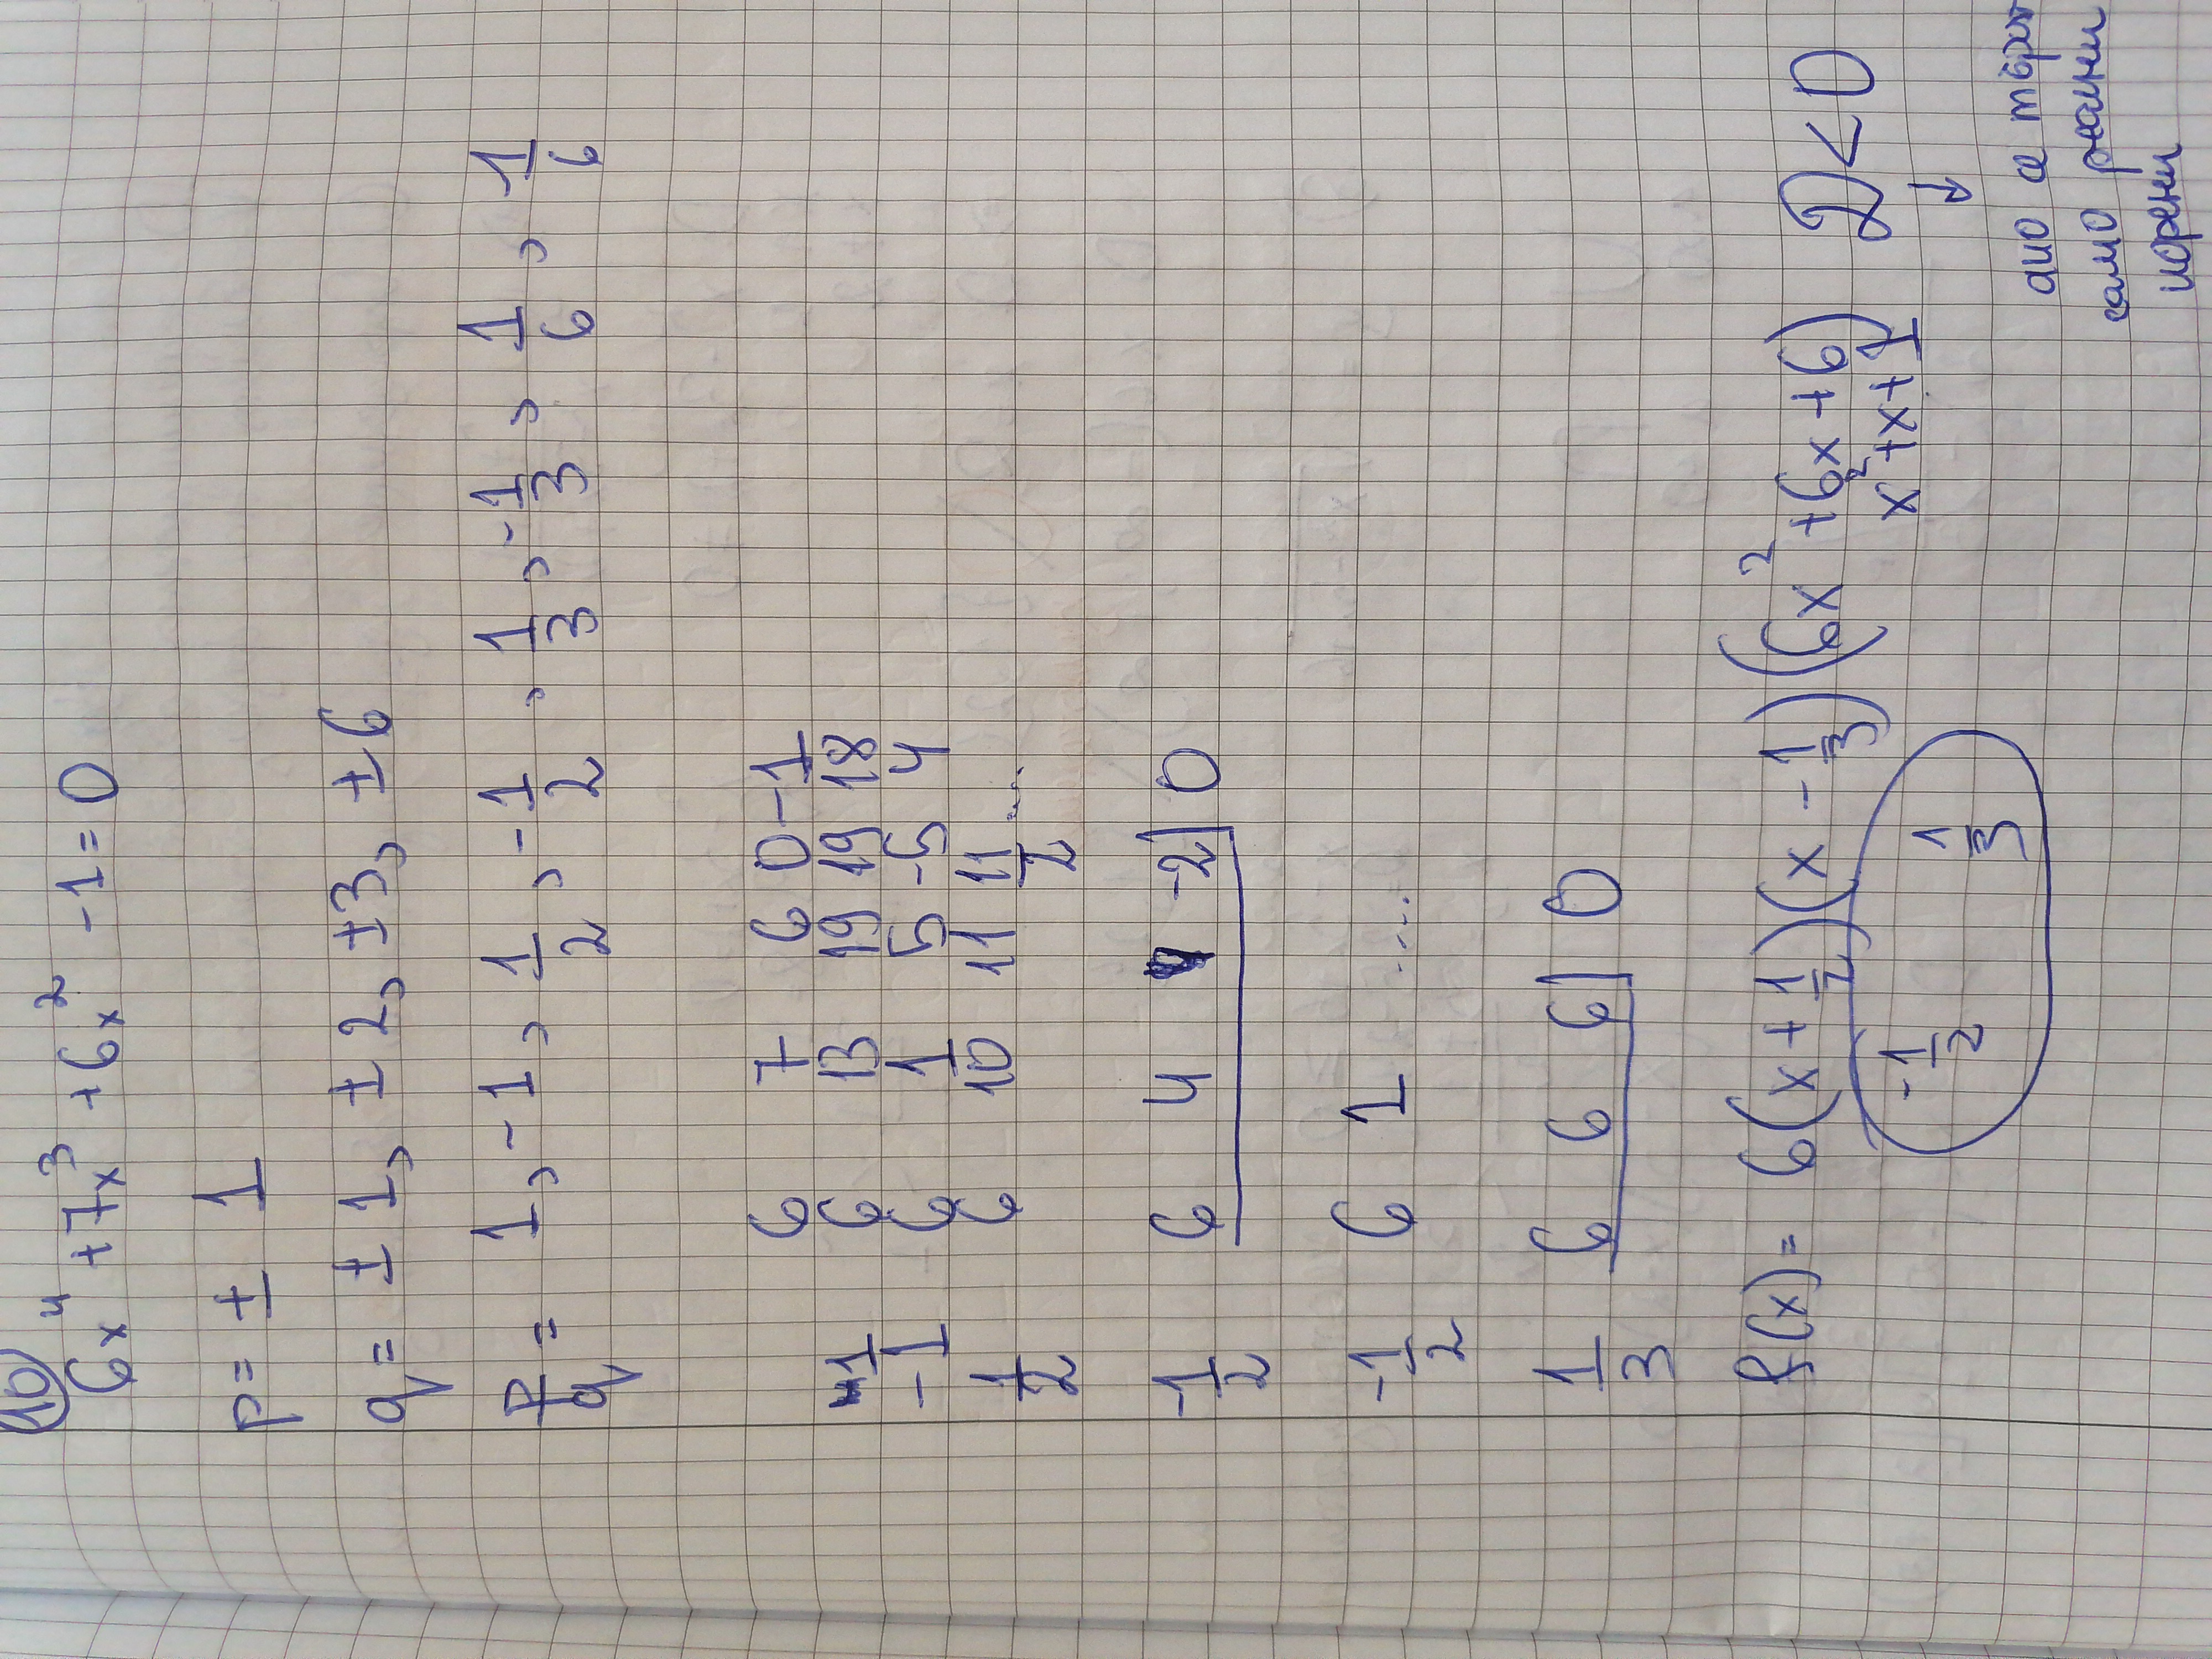 10
6x⁴ + 7x³ + 6x² - 1 = 0
p = ± 1
q = ± 1, ± 2, ± 3, ± 6
p/q = 1, -1, 1/2, -1/2, 1/3, -1/3, 1/6, 1/6
6 7 6 0 -1
1 6 13 19 19 18
-1 6 1 5 -5 4
1/2 6 10 11 11/2 ...
-1/2 6 4 4 -2 0
-1/2 6 1 ....
1/3 6 6 6 0
f(x) = 6(x + 1/2)(x - 1/3)(6x² + 6x + 6) D < 0
x² + x + 1
-1/2 1/3
↓
ако се търсят
само реални
корени